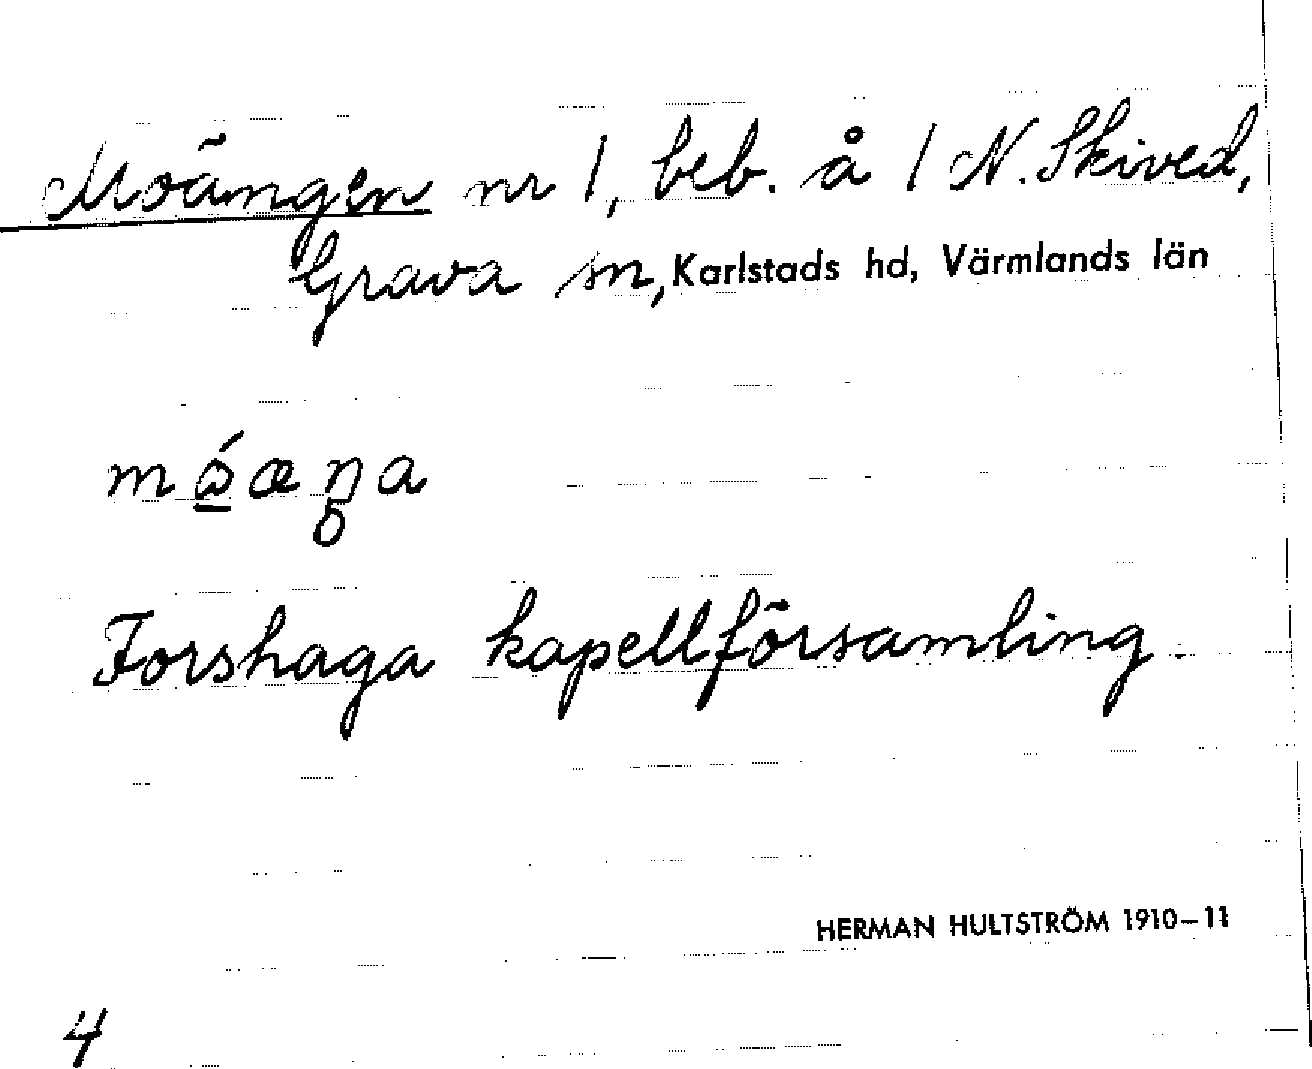 Moängen nr 1, beb. å 1 N. Skived,
Grava sn, Karlstads hd, Värmlands län
Forshaga kapellförsamling.
HERMAN HULTSTRÖM 1910–11
4